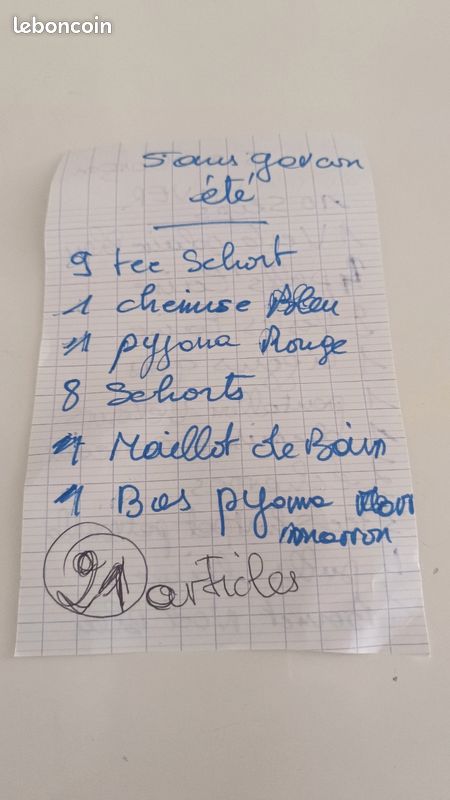 leboncoin
5 ans garcon
été
9 tee Schort
1 chemise Bleu
1 pyjama Rouge
8 Schorts
1 Maillot de Bain
1 Bas pyjama
marron
21 articles